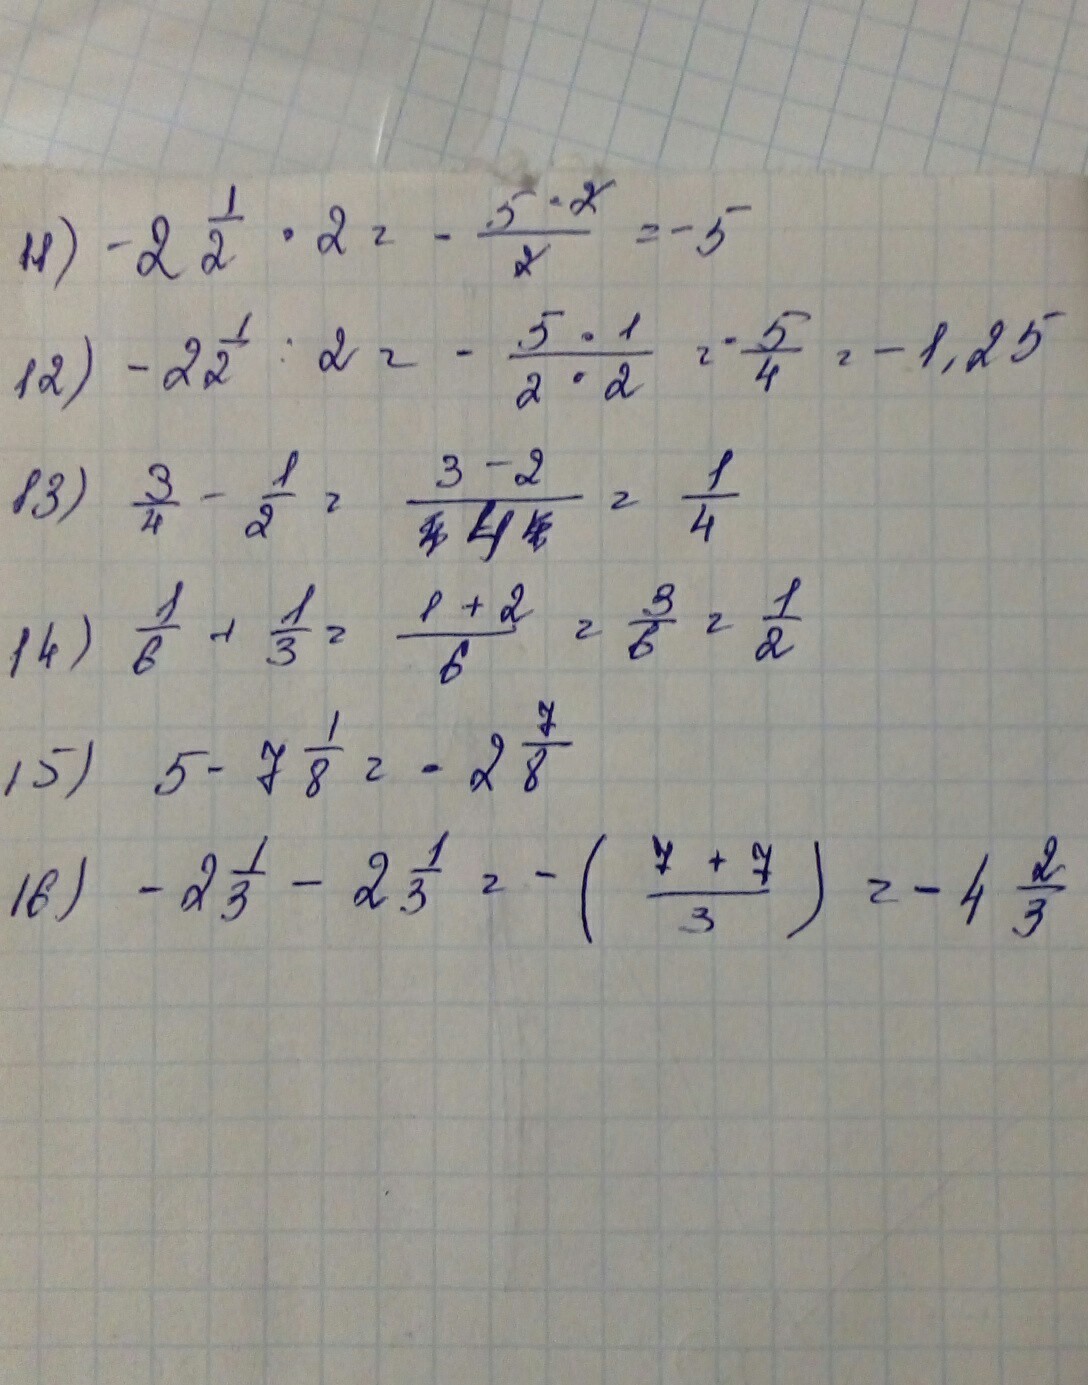 11) -2 1/2 · 2 = - 5·2/2 = -5
12) -2 1/2 : 2 = - 5·1/2·2 = - 5/4 = -1,25
13) 3/4 - 1/2 = 3-2/4 = 1/4
14) 1/6 + 1/3 = 1+2/6 = 3/6 = 1/2
15) 5 - 7 1/8 = - 2 7/8
16) -2 1/3 - 2 1/3 = - ( 7+7/3 ) = -4 2/3